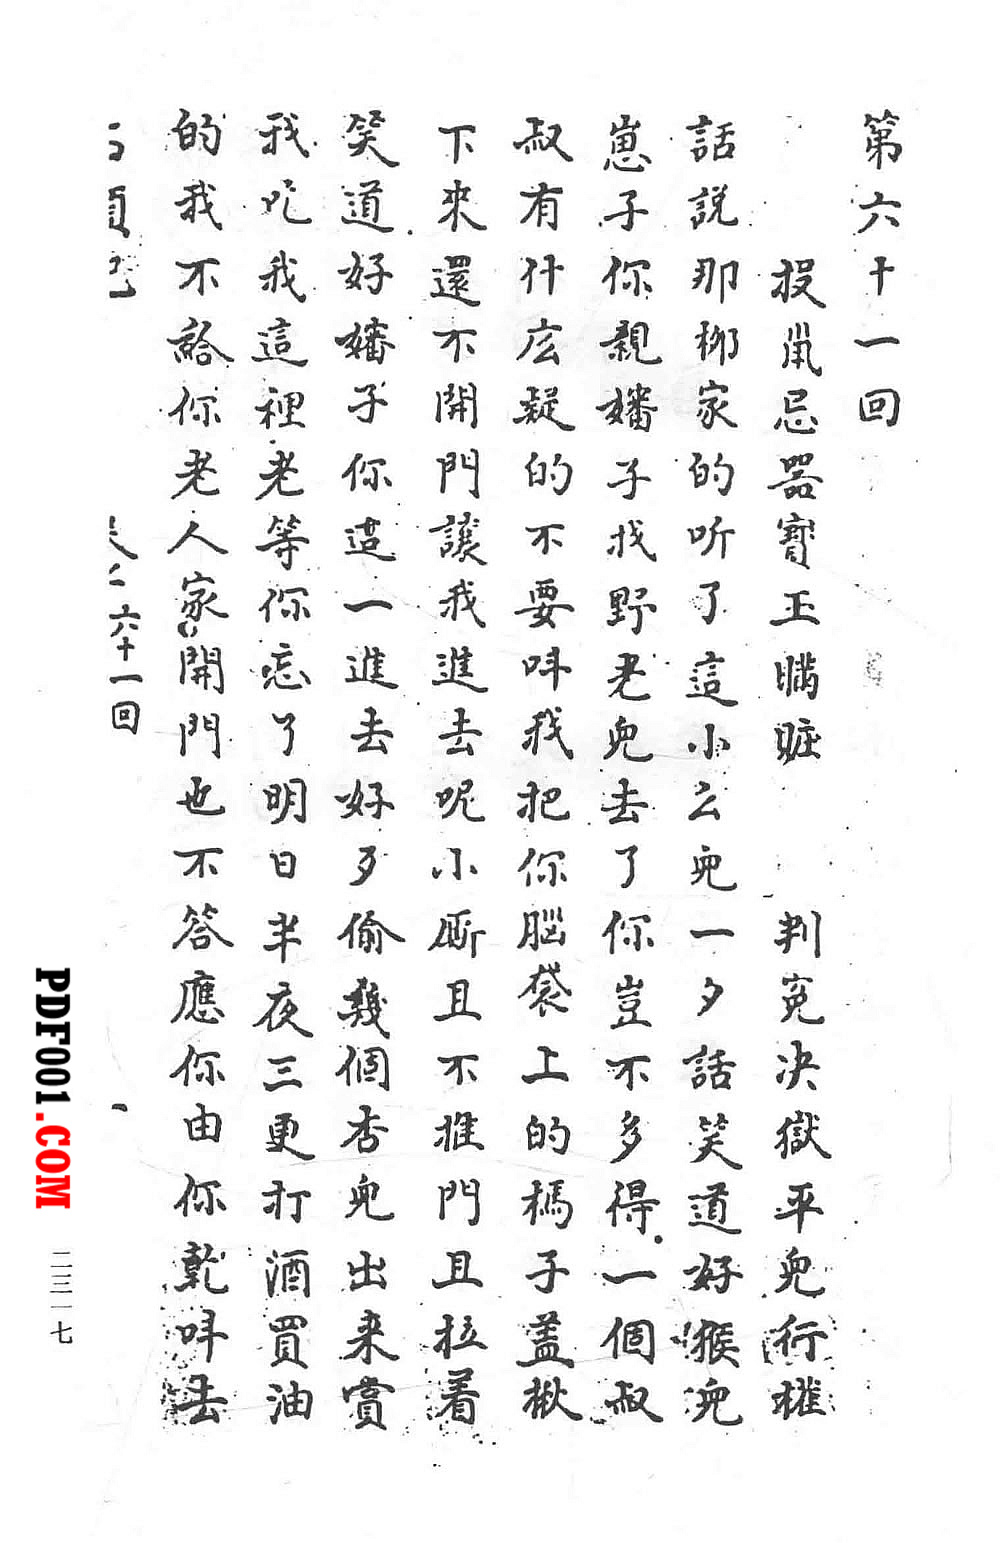 第六十一回
投鼠忌器寶玉瞞贓 判冤决獄平兒行權
話説那栁家的听了這小么兒一夕話笑道好猴兒
崽子你親嬸子找野老兒去了你豈不多得一個叔
叔有什庅疑的不要呌我把你腦袋上的榪子盖揪
下來還不開門讓我進去呢小厮且不推門且拉着
笑道好嬸子你這一進去好歹偷幾個杏兒出来賞
我吃我這裡老等你忘了明日半夜三更打酒買油
的我不給你老人家開門也不答應你由你乾呌去
六十一回
二三一七
PDF001.COM